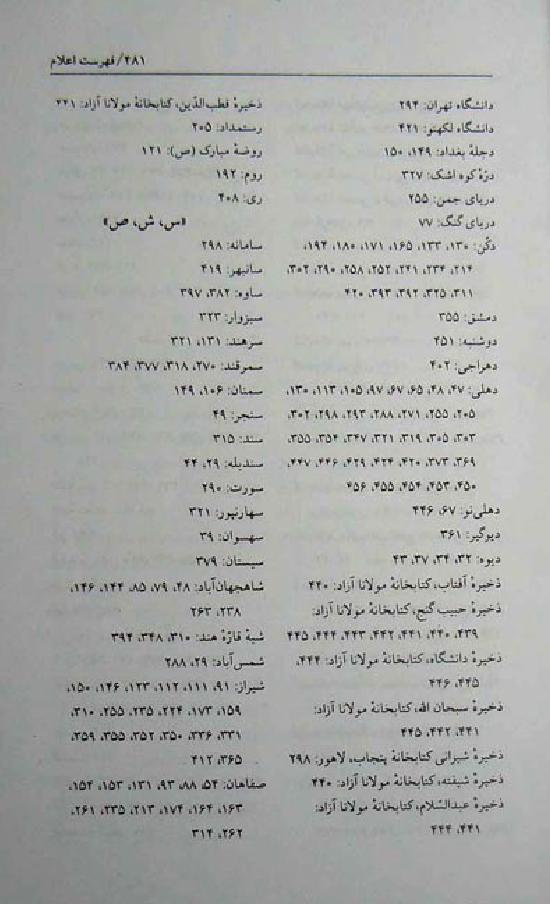 ۲۸۱/ فهرست اعلام
دانشگاه تهران: ۲۹۴
دانشگاه لکهنو: ۴۲۱
دجلهٔ بغداد: ۱۴۹، ۱۵۰
درّهٔ کوه اشک: ۳۲۷
دریای جمن: ۲۵۵
دریای گنگ: ۷۷
دکّن: ۱۳۰، ۱۳۳، ۱۶۵، ۱۷۱، ۱۸۰، ۱۹۴،
۲۱۴، ۲۳۴، ۲۴۱، ۲۵۲، ۲۵۸، ۲۹۰، ۳۰۲،
۳۱۱، ۳۲۵، ۳۹۲، ۳۹۳، ۴۲۰
دمشق: ۳۵۵
دوشنبه: ۴۵۱
دهراجی: ۴۰۲
دهلی: ۴۷، ۴۸، ۶۵، ۶۷، ۹۷، ۱۰۵، ۱۱۳، ۱۳۰،
۲۰۵، ۲۵۵، ۲۷۱، ۲۸۸، ۲۹۳، ۲۹۸، ۳۰۲،
۳۰۳، ۳۰۵، ۳۱۹، ۳۲۱، ۳۴۷، ۳۵۴، ۳۵۵،
۳۶۹، ۳۷۳، ۴۲۰، ۴۲۴، ۴۲۹، ۴۴۶، ۴۴۷،
۴۵۰، ۴۵۳، ۴۵۴، ۴۵۵، ۴۵۶
دهلی‌نو: ۶۷، ۴۴۶
دیوگیر: ۳۶۱
دیوه: ۳۲، ۳۴، ۳۷، ۴۳
ذخیرهٔ آفتاب، کتابخانهٔ مولانا آزاد: ۴۴۰
ذخیرهٔ حبیب گنج، کتابخانهٔ مولانا آزاد:
۴۳۹، ۴۴۰، ۴۴۱، ۴۴۲، ۴۴۳، ۴۴۴، ۴۴۵
ذخیرهٔ دانشگاه، کتابخانهٔ مولانا آزاد: ۴۴۴،
۴۴۵، ۴۴۶
ذخیرهٔ سبحان الله، کتابخانهٔ مولانا آزاد:
۴۴۱، ۴۴۲، ۴۴۵
ذخیرهٔ شیرانی کتابخانهٔ پنجاب، لاهور: ۲۹۸
ذخیرهٔ شیفته، کتابخانهٔ مولانا آزاد: ۴۴۰
ذخیرهٔ عبدالسّلام، کتابخانهٔ مولانا آزاد:
۴۴۱، ۴۴۴
ذخیرهٔ قطب‌الدّین، کتابخانهٔ مولانا آزاد: ۴۴۱
رستمداد: ۲۰۵
روضهٔ مبارک (ص): ۱۲۱
روم: ۱۹۲
ری: ۴۰۸
«س، ش، ص»
سامانه: ۲۹۸
سانبهر: ۴۱۹
ساوه: ۳۸۲، ۳۹۷
سبزوار: ۳۲۳
سرهند: ۱۳۱، ۳۲۱
سمرقند: ۲۷۰، ۳۱۸، ۳۷۷، ۳۸۴
سمنان: ۱۰۶، ۱۴۹
سنجر: ۴۹
سند: ۳۱۵
سندیله: ۲۹، ۴۴
سورت: ۲۹۰
سهارنپور: ۳۲۱
سهسوان: ۳۹
سیستان: ۳۷۹
شاهجهان‌آباد: ۴۸، ۷۹، ۸۵، ۱۴۴، ۱۴۶،
۲۳۸، ۲۶۳
شبهٔ قارّهٔ هند: ۳۱۰، ۳۴۸، ۳۹۴
شمس‌آباد: ۲۹، ۲۸۸
شیراز: ۹۱، ۱۱۱، ۱۱۲، ۱۲۳، ۱۴۶، ۱۵۰،
۱۵۹، ۱۷۳، ۲۲۴، ۲۳۵، ۲۵۵، ۳۱۰،
۳۳۱، ۳۳۶، ۳۵۰، ۳۵۲، ۳۵۵، ۳۵۹،
۳۶۵، ۴۱۲
صفاهان: ۵۴، ۸۸، ۹۳، ۱۳۱، ۱۵۳، ۱۵۴،
۱۶۳، ۱۶۴، ۱۷۴، ۲۱۳، ۲۳۵، ۲۶۱،
۲۶۲، ۳۱۴